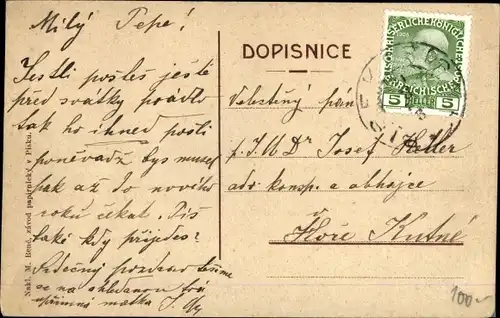 Milý Pepe!
Jestli pošleš ještě
před svátky prádlo
tak ho ihned pošli
poněvadž bys musel
pak až do nového
roku čekat. Piš
také kdy přijedeš?
Srdečný pozdrav těšíme
se na shledanou Tvá
upřímná matka
DOPISNICE
Velectěný pán
p. J. U. Dr Josef Keller
adv. konsp. a obhájce
v
Hoře Kutné
KAISERLICHEKÖNIGLICHE
ÖSTERREICHISCHE
5 HELLER 5
Nakl. M. Brod, závod papírnický, v Písku.
100.-